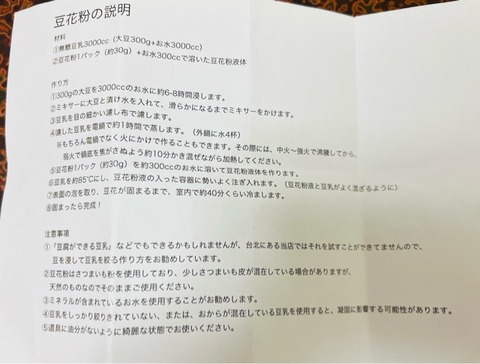 豆花粉の説明
材料
①無糖豆乳3000cc（大豆300g+お水3000cc）
②豆花粉1パック（約30g）+お水300ccで溶いた豆花粉液体
作り方
①300gの大豆を3000ccのお水に約6-8時間浸します。
②ミキサーに大豆と漬け水を入れて、滑らかになるまでミキサーをかけます。
③豆乳を目の細かい濾し布で濾します。
④濾した豆乳を電鍋で約1時間で蒸します。（外鍋に水4杯）
※もちろん電鍋でなく火にかけて作ることもできます。その際には、中火～強火で沸騰してから、
弱火で鍋底を焦がさぬよう約10分かき混ぜながら加熱してください。
⑤豆花粉1パック（約30g）を約300ccのお水に溶いて豆花粉液体を作ります。
⑥豆乳を約85℃にし、豆花粉液の入った容器に勢いよく注ぎ入れます。（豆花粉液と豆乳がよく混ざるように）
⑦表面の泡を取り、豆花が固まるまで、室内で約40分くらい冷まします。
⑧固まったら完成！
注意事項
①「豆腐ができる豆乳」などでもできるかもしれませんが、台北にある当店ではそれを試すことができてませんので、
豆を浸して豆乳を絞る作り方をお勧めしています。
②豆花粉はさつまいも粉を使用しており、少しさつまいも皮が混在している場合がありますが、
天然のものなのでそのままご使用ください。
③ミネラルが含まれているお水を使用することがお勧めします。
④豆乳をしっかり絞りきれていない、または、おからが混在している豆乳を使用すると、凝固に影響する可能性があります。
⑤道具に油分がないように綺麗な状態でお使いください。